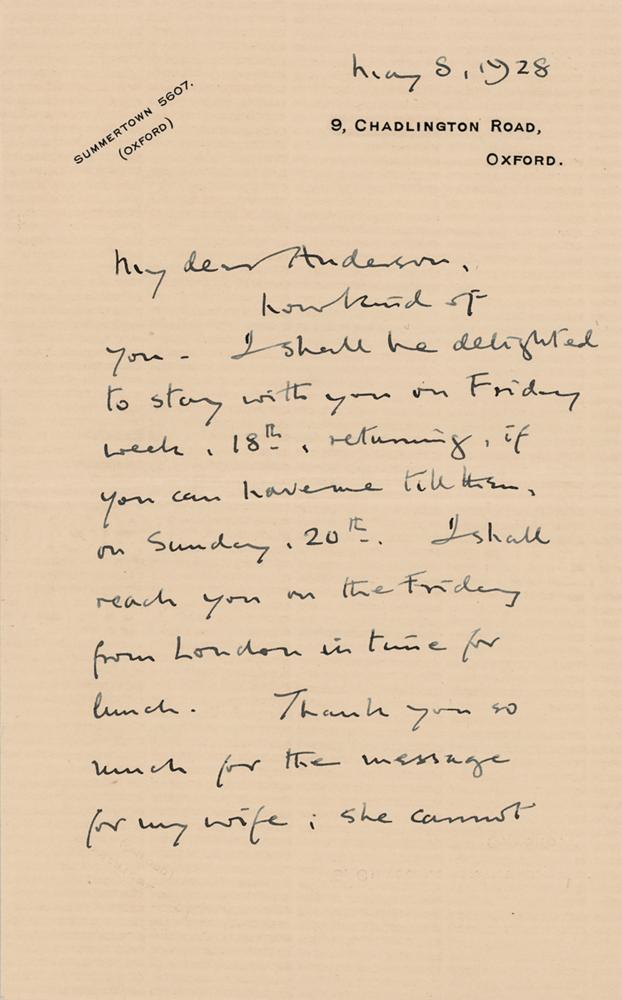 May 8, 1928
SUMMERTOWN 5607.
(OXFORD)
9, CHADLINGTON ROAD,
OXFORD.
My dear Anderson,
how kind of
you - I shall be delighted
to stay with you on Friday
week, 18th, returning, if
you can have me till then,
on Sunday, 20th. I shall
reach you on the Friday
from London in time for
lunch. Thank you so
much for the message
for my wife; she cannot